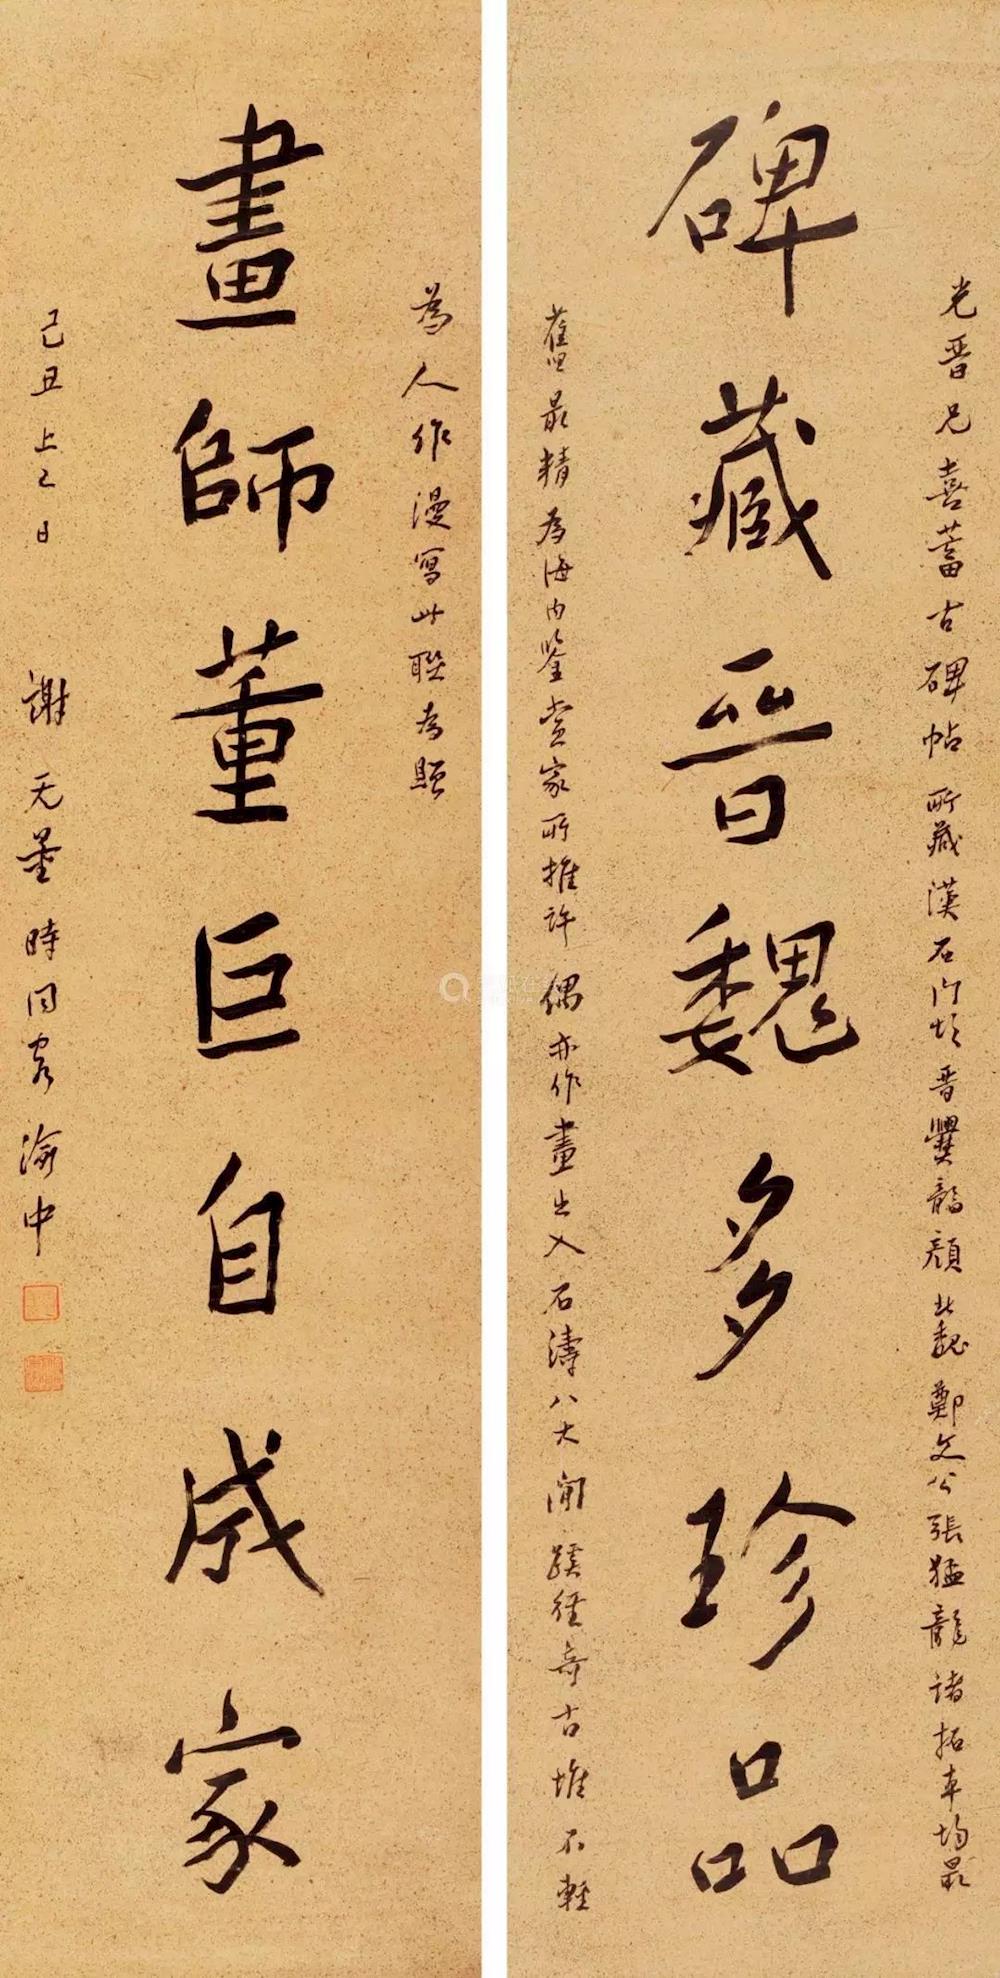 光晋兄喜蓄古碑帖所藏漢石门颂晋爨龍顔北魏鄭文公張猛龍諸拓本均最
碑藏晋魏多珍品
舊最精为海内鉴赏家所推许偶亦作畫出入石濤八大間蹊徑奇古惟不輕
為人作漫寫此聯为贈
畫師董巨自成家
己丑上巳日 謝无量時同客渝中